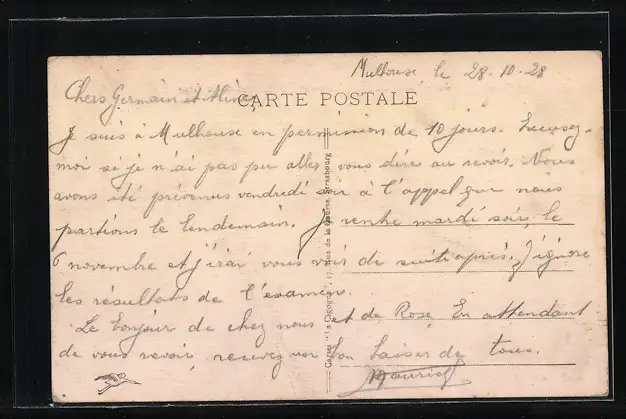 Mulhouse, le 28-10-28
Chers Germain et Aline,
CARTE POSTALE
Je suis à Mulhouse en permission de 10 jours. Excusez-
moi si je n'ai pas pu aller vous dire au revoir. Nous
avons été prévenus vendredi soir à l'appel que nous
partions le lendemain. Je rentre mardi soir, le
6 novembre et j'irai vous voir de suite après. J'ignore
les résultats de l'examen.
Le bonjour de chez nous et de Rose. En attendant
de vous revoir, recevez un bon baiser de tous.
Maurice
Cartes "La Cigogne", 17, Rue de la Course, Strasbourg